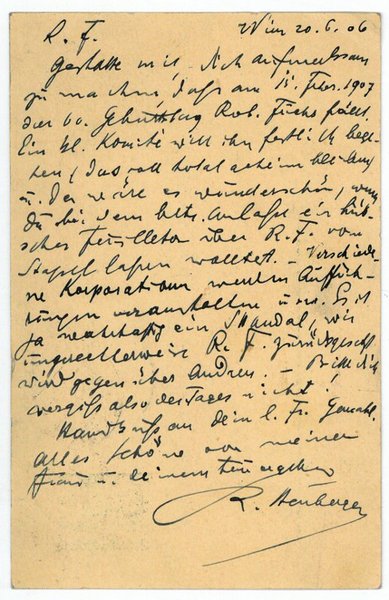 Wien 20.6.06
R. F.
Gestatte mir, Dich aufmerksam
zu machen, daß am 15. Febr. 1907
der 60. Geburtstag Rob. Fuchs fällt.
Ein kl. Komité will ihn festlich bege-
hen, (das soll total geheim bleiben)
u. da wäre es wunderschön, wenn
Du bei dem betr. Anlaße ein hüb-
sches Feuilleton über R. F. vom
Stapel laßen wolltest. – Verschiede-
ne Korporationen werden Auffüh-
rungen veranstalten u. s. w. Es ist
ja wahrhaftig ein Skandal, wie
ungerechterweise R. F. zurückgesetzt
wird gegenüber Andren. – Bitte Dich
vergiß also des Tages nicht!
Handkuß an Dein l. Fr. Gemahl.
alles Schöne von meiner
Frau u. deinem
R. Heuberger